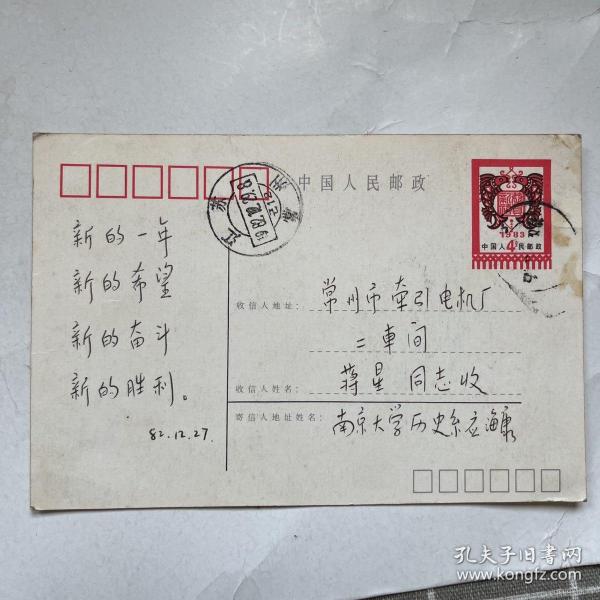 中国人民邮政
1983
中国人民邮政
4
江苏
1982.12.28
新的一年
新的希望
新的奋斗
新的胜利。
82.12.27.
收信人地址:
常州市牵引电机厂
二車间
收信人姓名:
蒋星 同志收
寄信人地址姓名:
南京大学历史系
孔夫子旧书网
www.kongfz.com